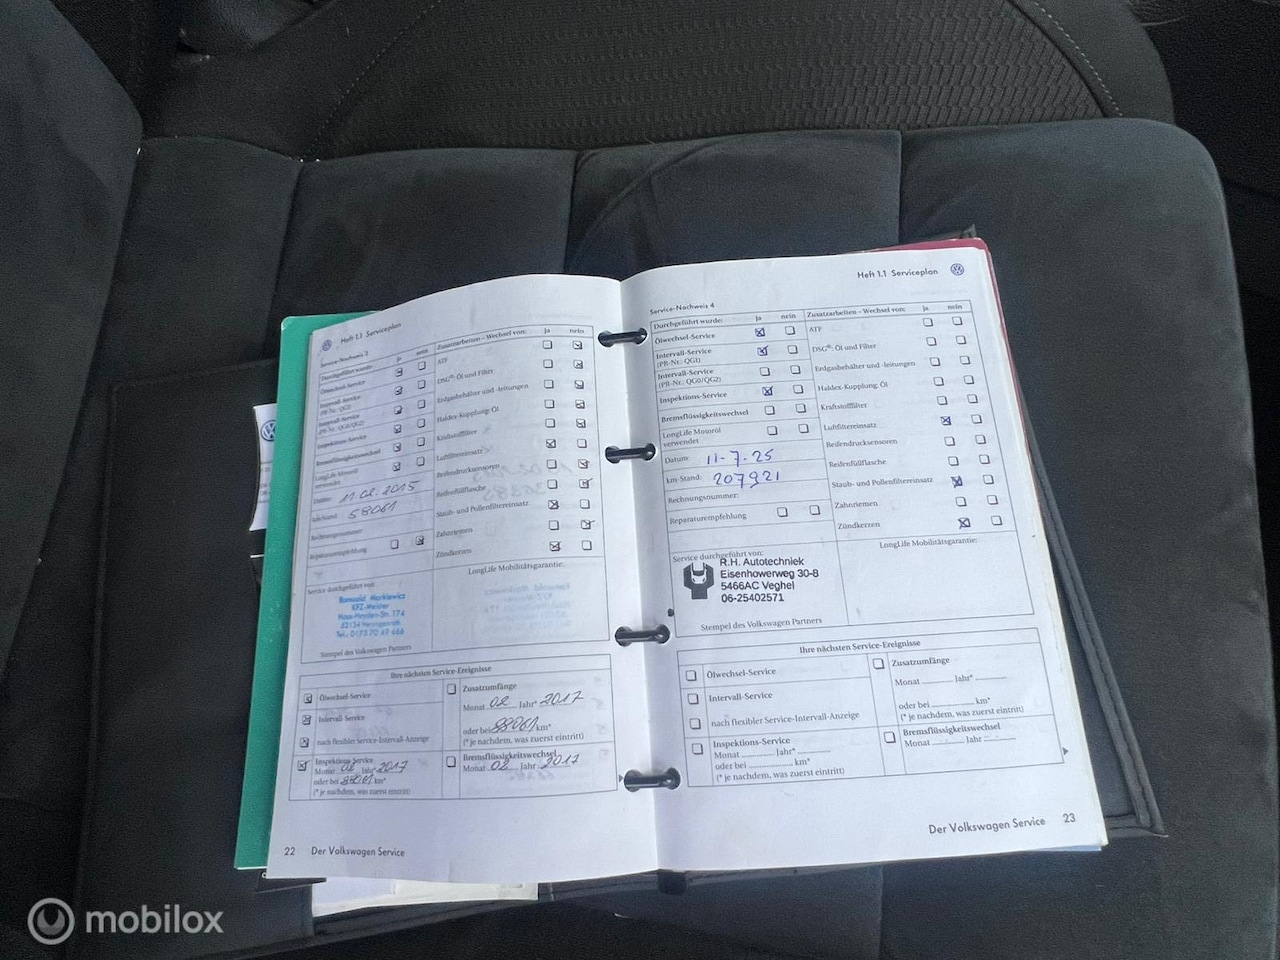 Heft 1.1 Serviceplan
Durchgeführt wurde: ja nein
Ölwechsel-Service
Intervall-Service
(PR-Nr.: QG1)
Intervall-Service
(PR-Nr.: QG0/QG2)
Inspektions-Service
Bremsflüssigkeitswechsel
LongLife Motoröl
verwendet
Datum: 11.02.2015
km-Stand: 58061
Rechnungsnummer:
Reparaturempfehlung
Zusatzarbeiten – Wechsel von: ja nein
ATF
DSG®-Öl und Filter
Erdgasbehälter und -leitungen
Haldex-Kupplung: Öl
Kraftstofffilter
Luftfiltereinsatz
Reifendrucksensoren
Reifenfüllflasche
Staub- und Pollenfiltereinsatz
Zahnriemen
Zündkerzen
Service durchgeführt von:
LongLife Mobilitätsgarantie:
Romuald Markiewicz
KFZ-Meister
Stempel des Volkswagen Partners
Ihre nächsten Service-Ereignisse
Ölwechsel-Service
Intervall-Service
nach flexibler Service-Intervall-Anzeige
Inspektions-Service
Monat 02 Jahr* 2017
oder bei 88061 km*
(* je nachdem, was zuerst eintritt)
Zusatzumfänge
Monat 02 Jahr* 2017
oder bei 88061 km*
(* je nachdem, was zuerst eintritt)
Bremsflüssigkeitswechsel
Monat 02 Jahr 2017
22 Der Volkswagen Service
Heft 1.1 Serviceplan
Service-Nachweis 4
Durchgeführt wurde: ja nein
Ölwechsel-Service
Intervall-Service
(PR-Nr.: QG1)
Intervall-Service
(PR-Nr.: QG0/QG2)
Inspektions-Service
Bremsflüssigkeitswechsel
LongLife Motoröl
verwendet
Datum: 11-7-25
km-Stand: 207921
Rechnungsnummer:
Reparaturempfehlung
Zusatzarbeiten – Wechsel von: ja nein
ATF
DSG®-Öl und Filter
Erdgasbehälter und -leitungen
Haldex-Kupplung: Öl
Kraftstofffilter
Luftfiltereinsatz
Reifendrucksensoren
Reifenfüllflasche
Staub- und Pollenfiltereinsatz
Zahnriemen
Zündkerzen
Service durchgeführt von:
LongLife Mobilitätsgarantie:
R.H. Autotechniek
Eisenhowerweg 30-8
5466AC Veghel
06-25402571
Stempel des Volkswagen Partners
Ihre nächsten Service-Ereignisse
Ölwechsel-Service
Intervall-Service
nach flexibler Service-Intervall-Anzeige
Inspektions-Service
Monat Jahr*
oder bei km*
(* je nachdem, was zuerst eintritt)
Zusatzumfänge
Monat Jahr*
oder bei km*
(* je nachdem, was zuerst eintritt)
Bremsflüssigkeitswechsel
Monat Jahr
Der Volkswagen Service 23
mobilox